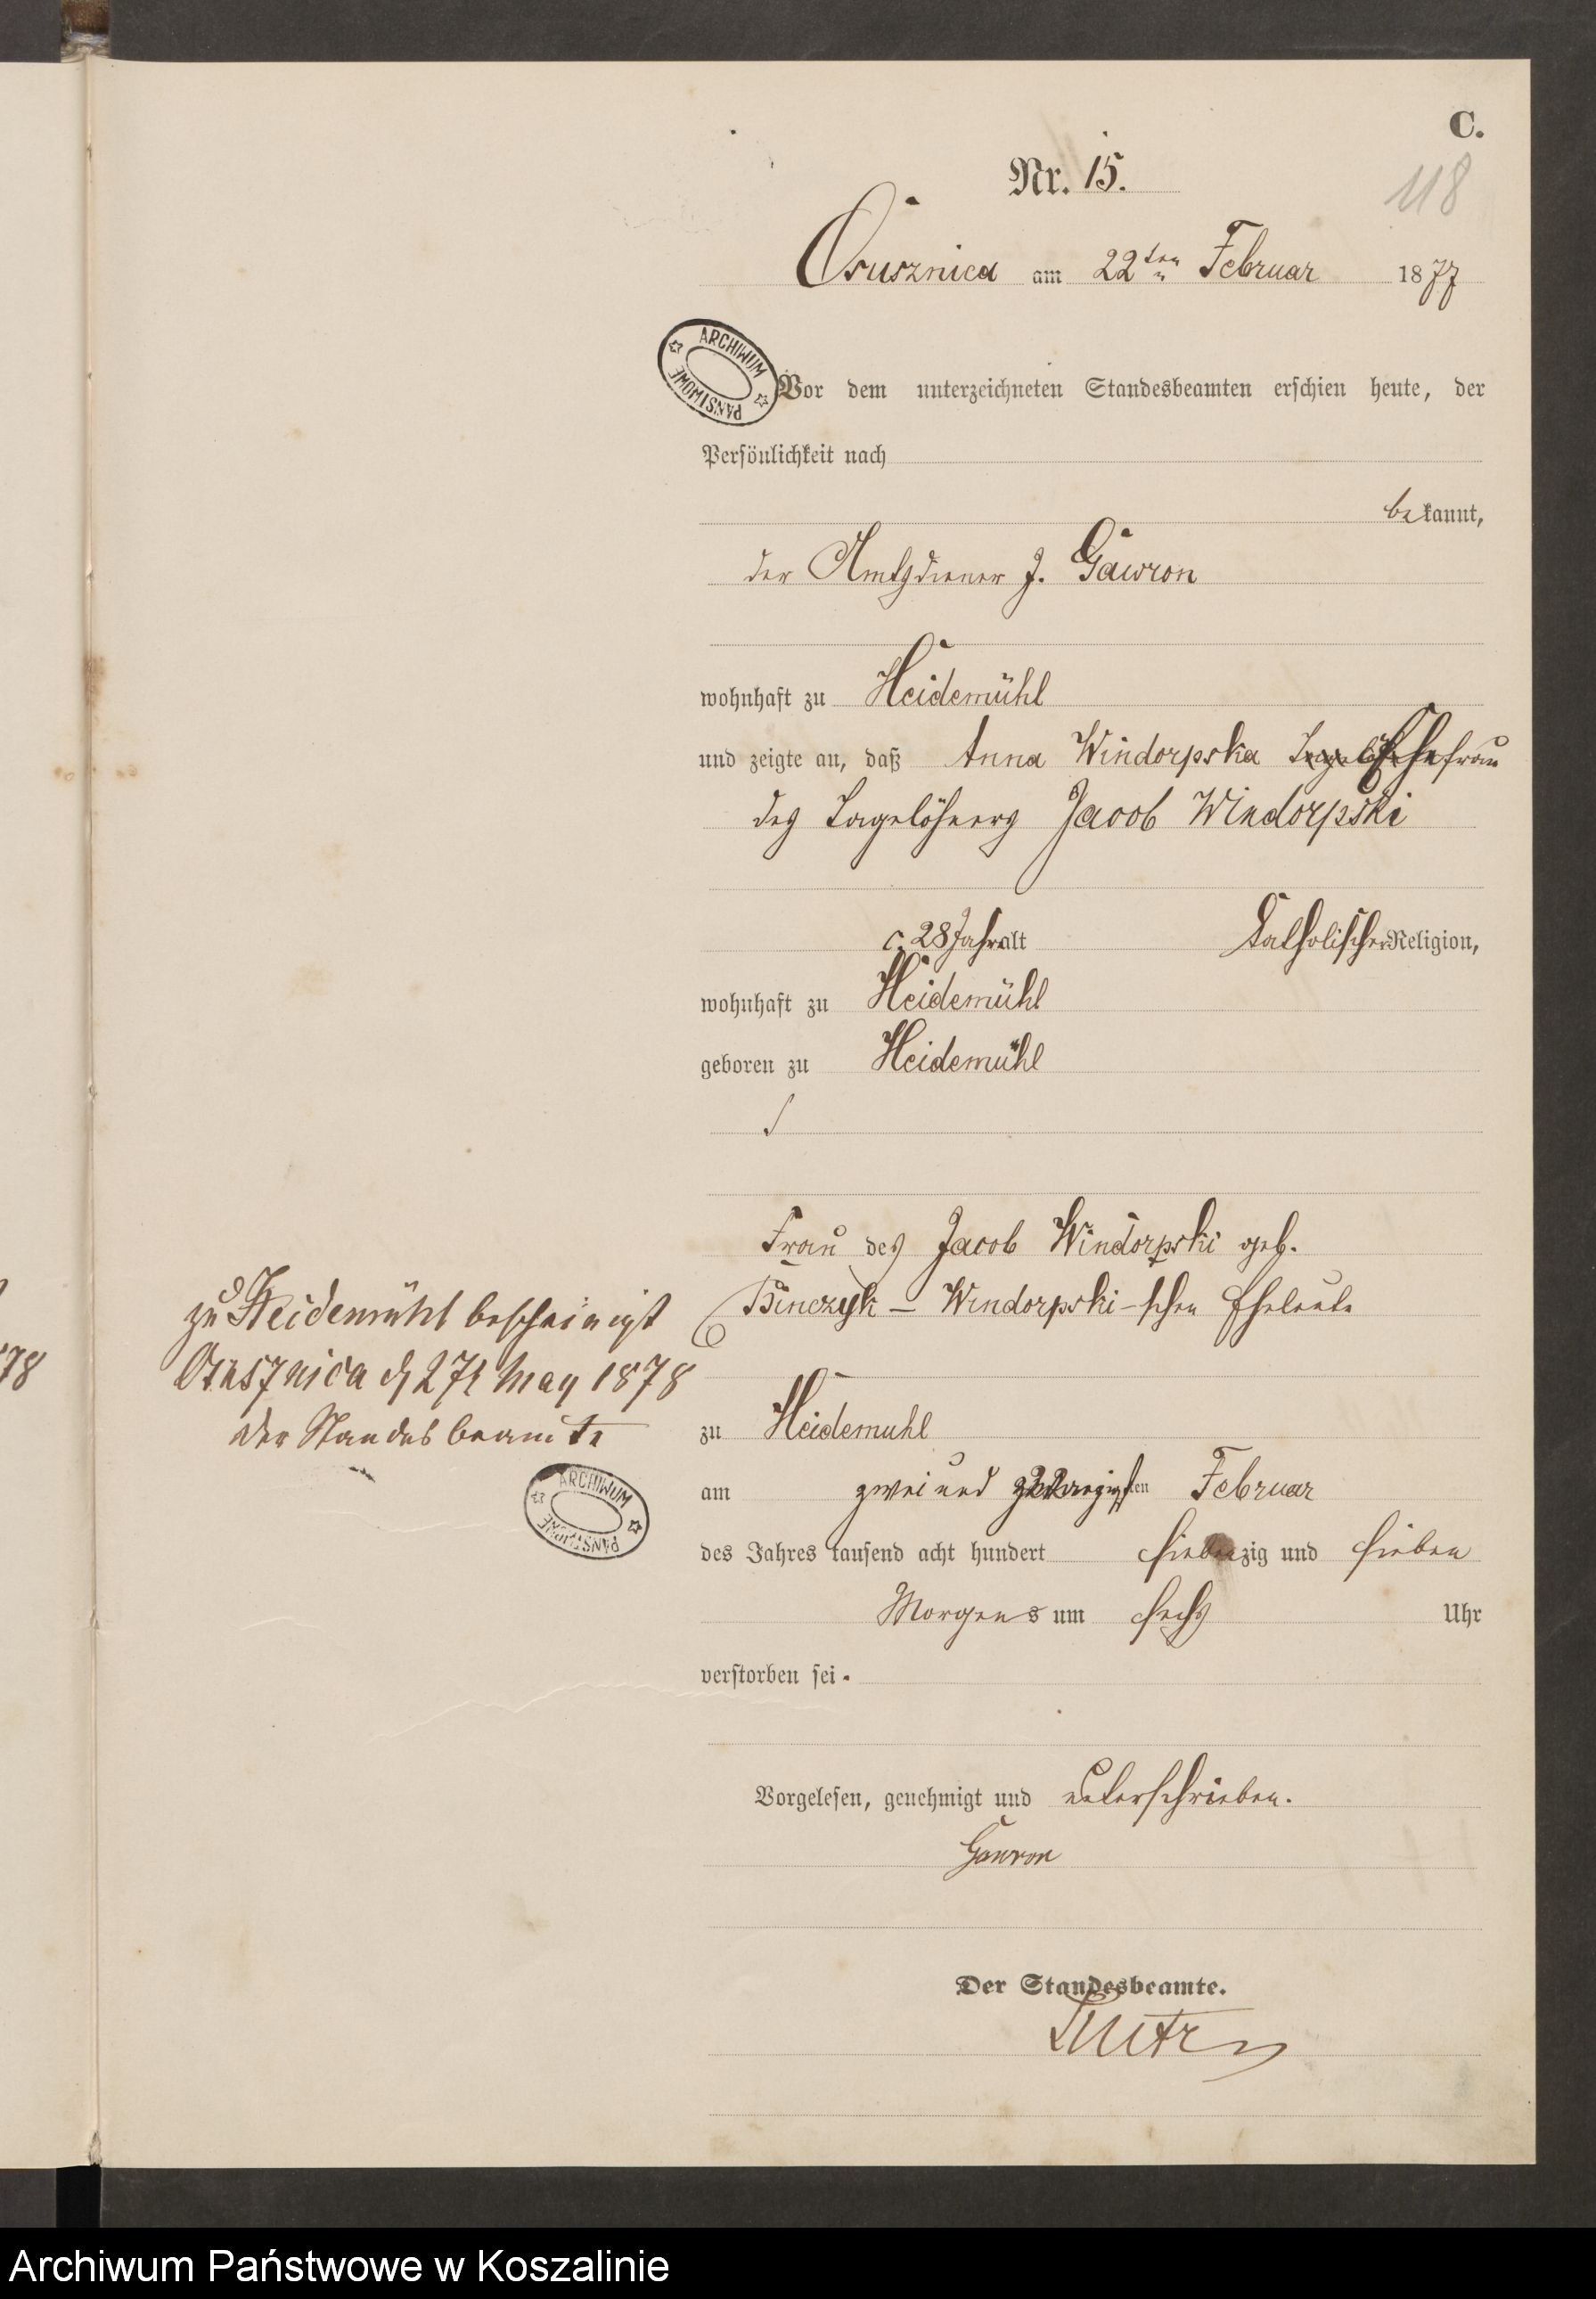 C.
Nr. 15.
118
Osusznica am 22ten Februar 1877
ARCHIWUM PAŃSTWOWE
Vor dem unterzeichneten Standesbeamten erschien heute, der
Persönlichkeit nach
bekannt,
der Amtsdiener J. Gawron
wohnhaft zu Heidemühl
und zeigte an, daß Anna Windorpska Ehefrau
des Tagelöhners Jacob Windorpski
c. 28 Jahr alt Katholischer Religion,
wohnhaft zu Heidemühl
geboren zu Heidemühl
Frau des Jacob Windorpski geb.
Binczyk – Windorpski-schen Eheleute
zu Heidemuhl
am zwei und zwanzigsten Februar
des Jahres tausend acht hundert siebenzig und sieben
Morgens um sechs Uhr
verstorben sei.
Vorgelesen, genehmigt und unterschrieben.
Gawron
Der Standesbeamte.
zu Heidemühl bescheinigt
Osusznica d 27t May 1878
der Standesbeamte
ARCHIWUM PAŃSTWOWE
78
Archiwum Państwowe w Koszalinie